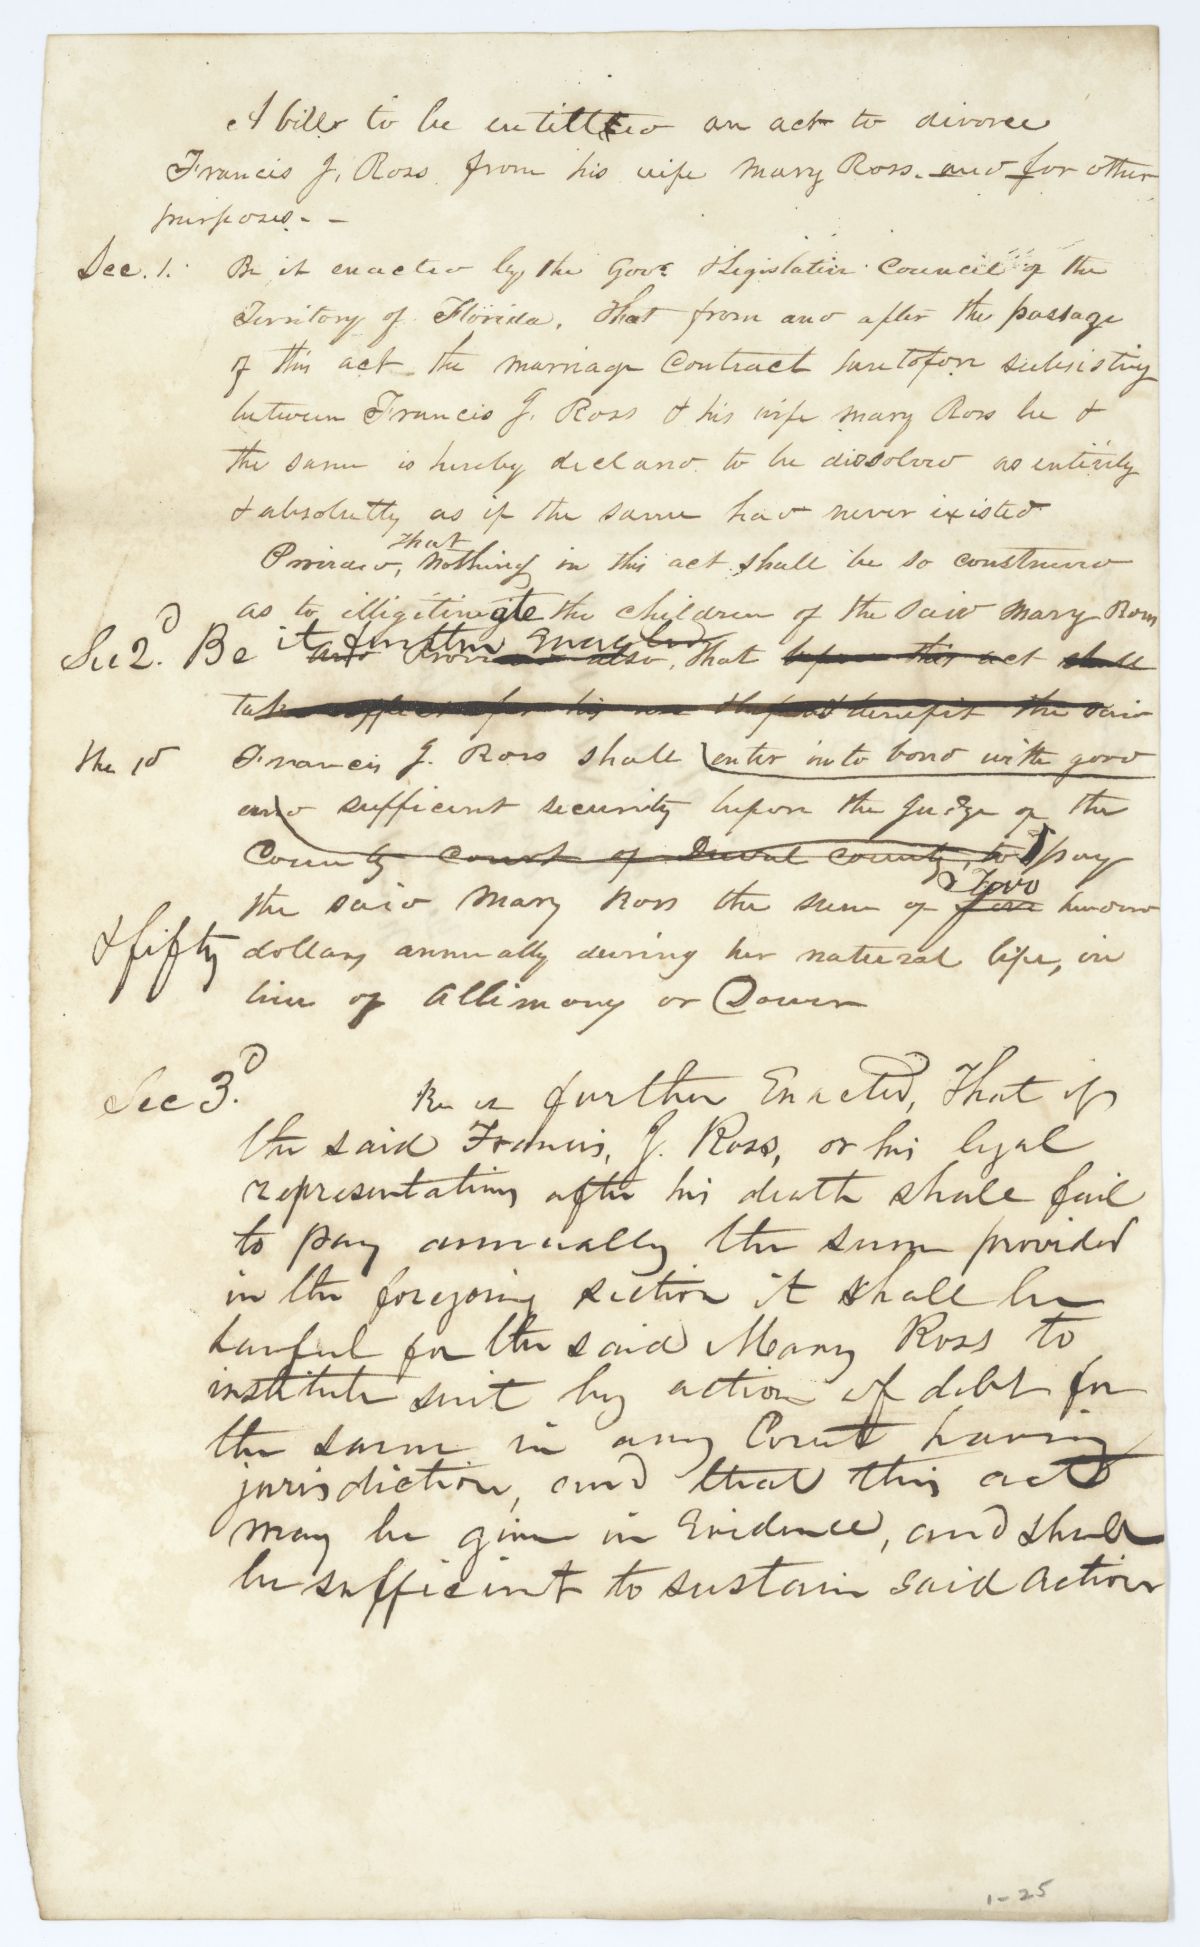 A bill to be entitled an act to divorce
Francis J. Ross from his wife Mary Ross. and for other
purposes. -
Sec. 1. Be it enacted by the Govr. & Legislative Council of the
Territory of Florida, That from and after the passage
of this act the marriage contract heretofore subsisting
between Francis J. Ross & his wife Mary Ross be &
the same is hereby declared to be dissolved as entirely
& absolutely as if the same had never existed
Provided, that nothing in this act shall be so construed
as to illigitimate the children of the said Mary Ross
Sec 2d. Be it further Enacted
and Provided also, that before this act shall
take effect for his use and benefit the said
the sd Francis J. Ross shall enter into bond with good
and sufficient security before the Judge of the
County Court of Duval County, to pay
the said Mary Ross the sum of five Two hundred
& fifty dollars annually during her natural life, in
lieu of allimony or Dower
Sec 3d. Be it further Enacted, That if
the said Francis, J. Ross, or his legal
representatives after his death shall fail
to pay annually the sum provided
in the foregoing section it shall be
lawful for the said Mary Ross to
institute suit by action of debt for
the same in any Court having
jurisdiction, and that this act
may be given in Evidence, and shall
be sufficient to sustain said action
1-25